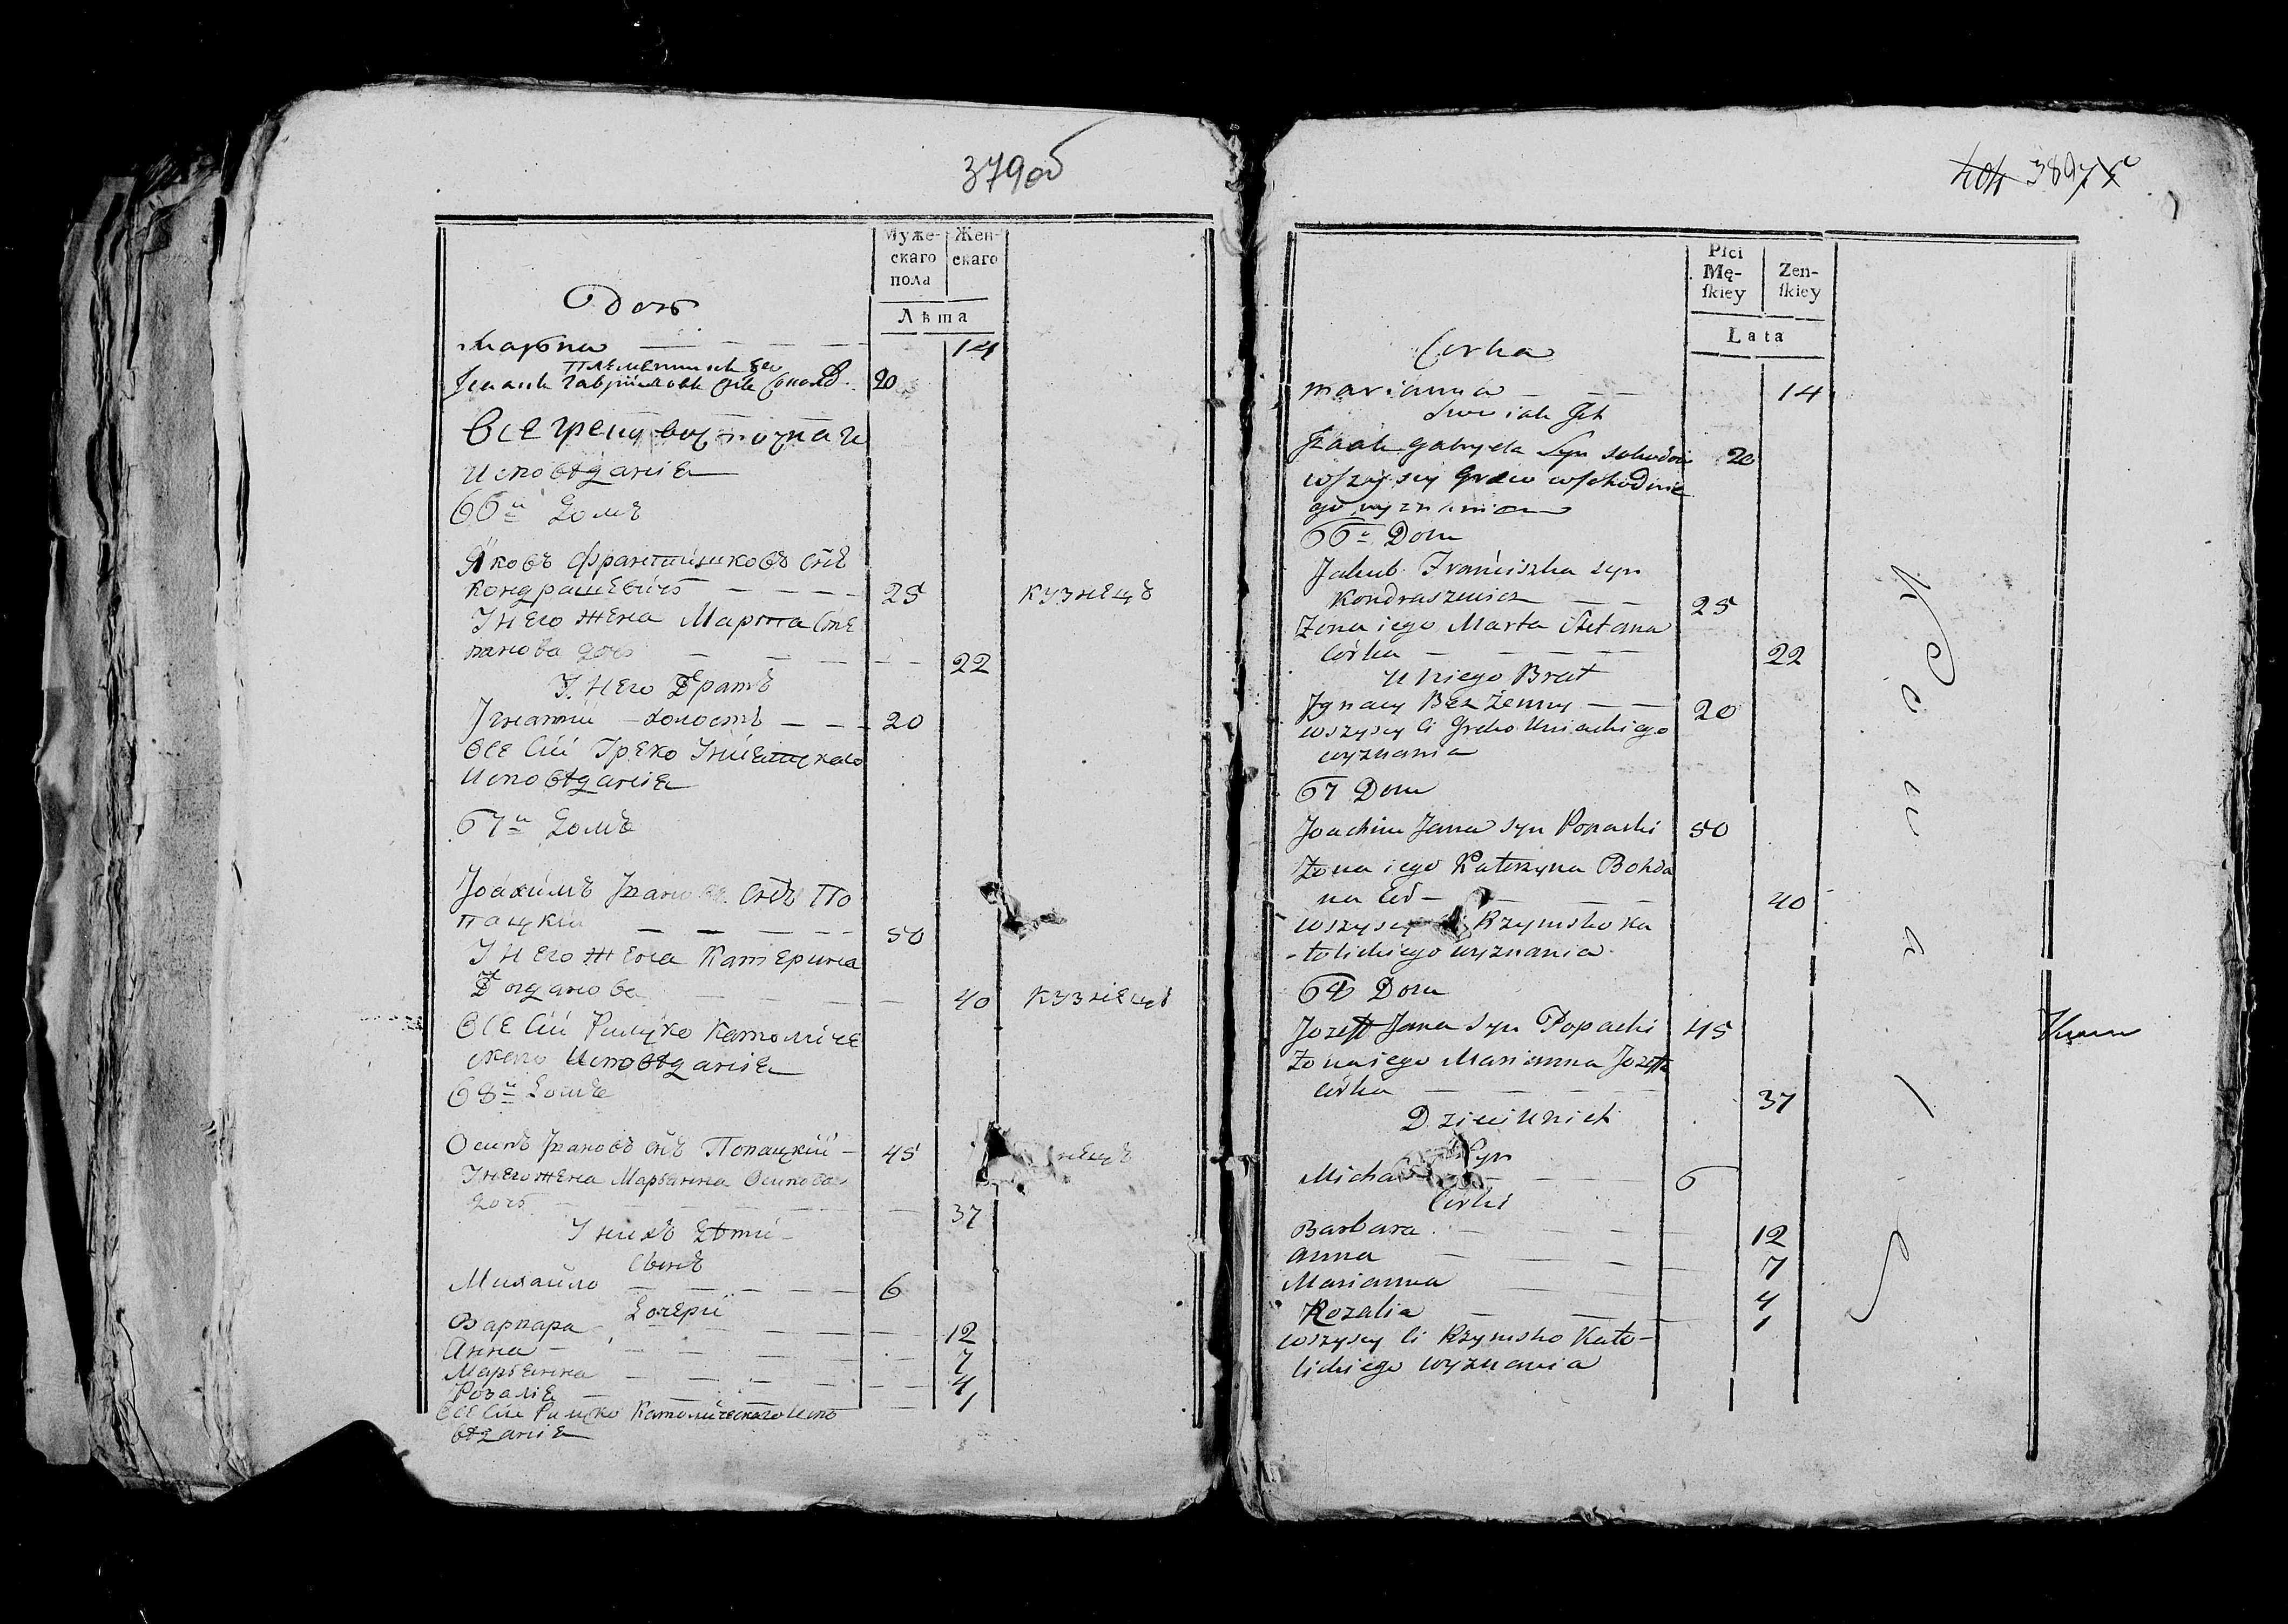 379об
Муже-
скаго
пола
Жен-
скаго
Лѣта
дочь
Марьяна — — — — 14
Племенникъ его
Гаврииловъ снъ 20
Все греко восточнаго
исповѣданія
66й домъ
Яковъ Францишковъ снъ
Кондрашевичъ — — — — 25 кузнецъ
У него жена Марта Сте
панова дочь — — — — — 22
У него братъ
Игнатій — холостъ — — — 20
Все сіи Греко Уніятскаго
исповѣданія
67й домъ
Іоахимъ Ивановъ снъ По
пацкій — — — — — 50
У него жена Катерина
Богданова — — — — 40 кузнецъ
Все сіи Римско Католиче
скаго исповѣданія
68й домъ
Осипъ Ивановъ снъ Попацкій — 45 нецъ
У него жена Марьянна Осипова
дочь — — — — — 37
У нихъ дѣти —
Сынъ
Михайло — — — — — 6
Дочери
Варвара — — — — — 12
Анна — — — — — 7
Марьянна — — — — — 4
Розалія — — — — — 1
Все сіи Римско Католическаго испо
вѣданія
404 389
Płci
Mę-
ſkiey
Zen-
ſkiey
Lata
Corka
Marianna — — — 14
Izaak Gabryela Syn 20
wszyscy Greco wschodnie
go wyznania
66 Dom
Jakub Franciszka syn
Kondraszewicz — — 25
Żona iego Marta Stefana
Córka — — — — — 22
U niego Brat
Ignacy Bez Żenny — — 20
wszyscy ci Greko Uniackiego
wyznania
67 Dom
Joachim Jana syn Popacki 50
Żona iego Katerzyna Bohda
na Cór — — — 40
wszyscy Rzymsko Ka
-tolickiego wyznania
68 Dom
Jozeff Jana syn Popacki 45
Żona iego Marianna Jozeffa
Córka — — — — — 37
Dzieci U nich
Syn
Micha — — — — 6
Córki
Barbara — — — — 12
Anna — — — — 7
Marianna — — 4
Rozalia — — — — 1
wszyscy ci Rzymsko Kato-
lickiego wyznania